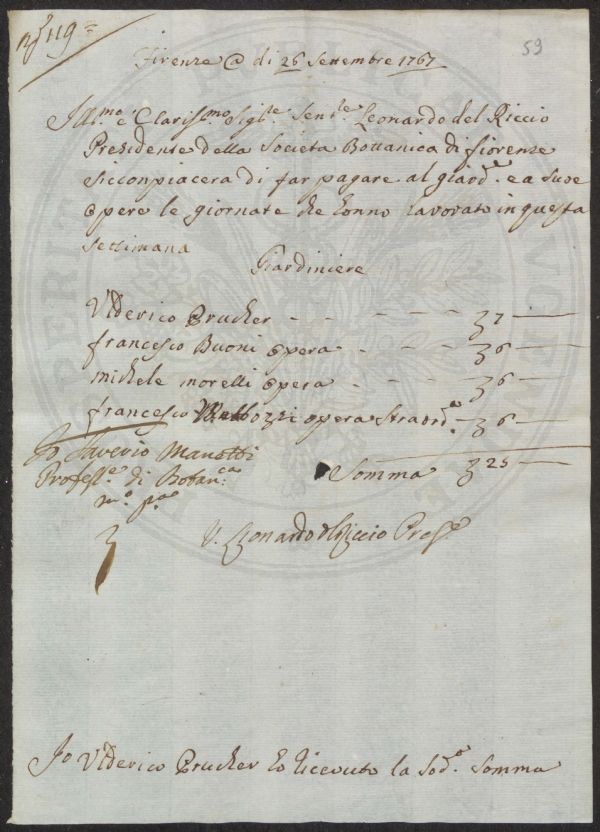 119
59
Firenze @ di 26 Settembre 1767
Ill.mo e Clariss.mo Sig.re Sen.re Leonardo del Riccio
Presidente della Societa Bottanica di fiorenze
siccompiacera di far pagare al giard.e e a sue
opere le giornate che honno lavorato in questa
settimana
Giardiniere
Vlderico Prucher - - - - - 7 —
francesco Buoni opera - - - 6 —
michele morelli opera - - - 6 —
francesco opera Straord.a - 6 —
Io Saverio Manetti
Profess.e di Botan.ca
m.o p.a
Somma 25 —
V. Leonardo del Riccio Pres.e
Io Vlderico Prucher ho ricevuto la sod.a somma